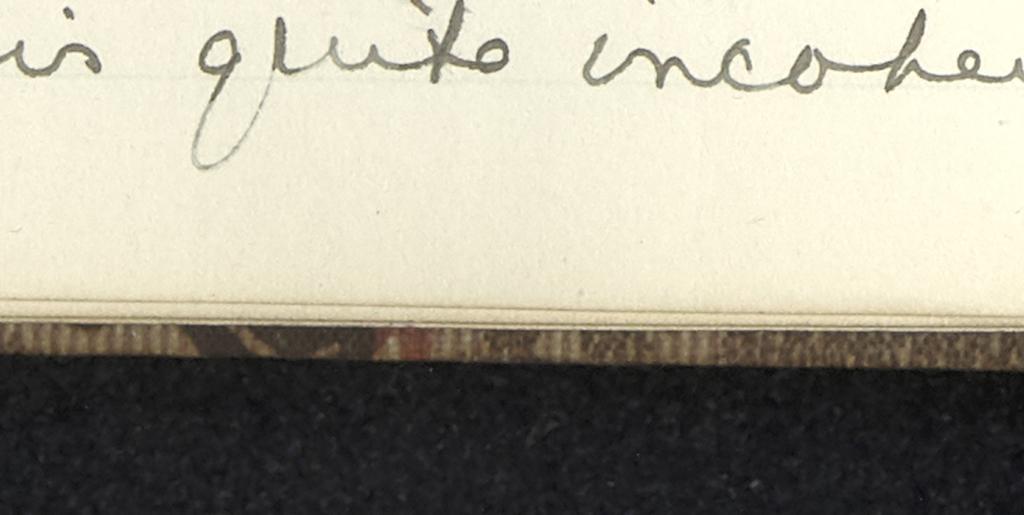 is quite incohe